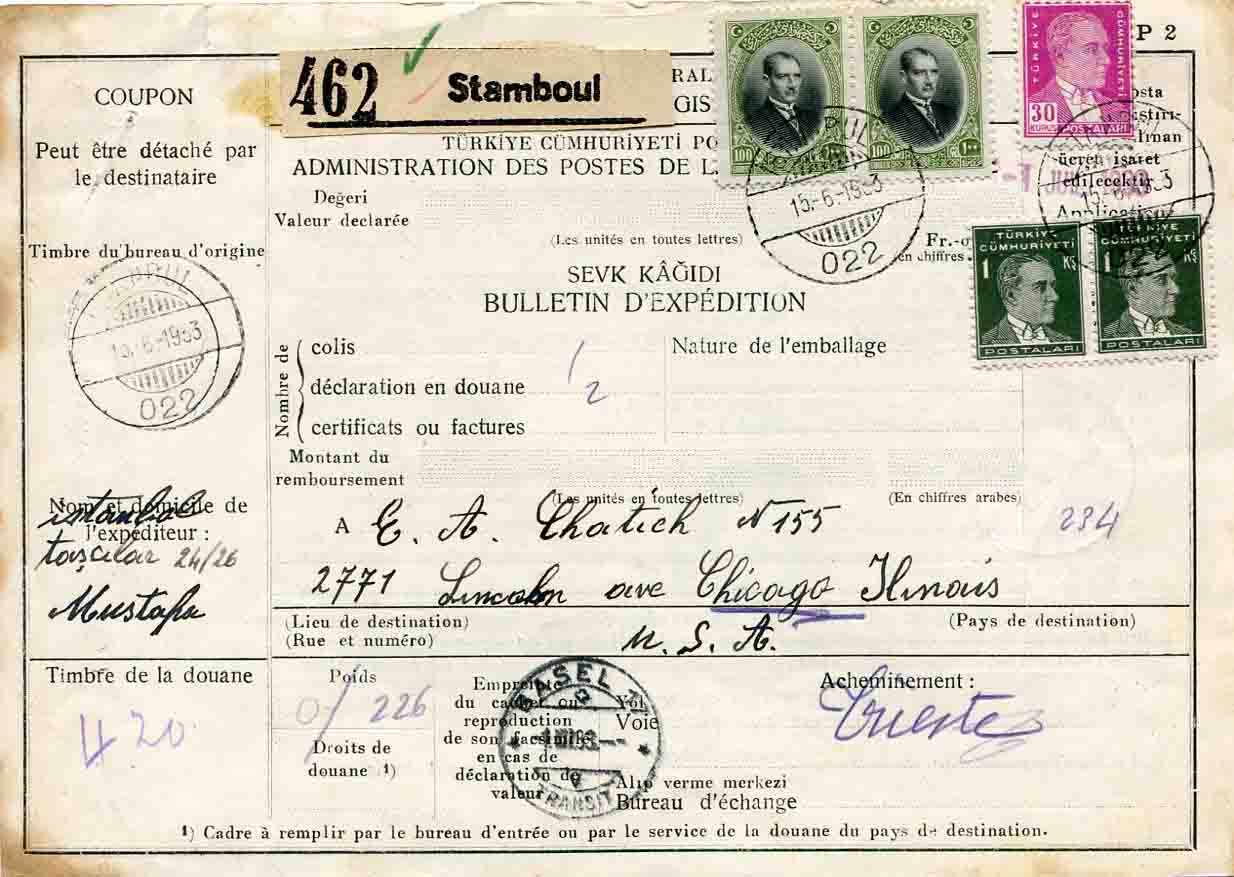 P 2
COUPON
Peut être détaché par
le destinataire
Timbre du bureau d'origine
15.-6-1953
022
Nom et domicile de
l'expéditeur :
istambol
taşcılar 24/26
Mustafa
Timbre de la douane
420
462 Stamboul
RAL
GIS
TÜRKİYE CÜMHURİYETİ PO
ADMINISTRATION DES POSTES DE L
Değeri
Valeur declarée
(Les unités en toutes lettres)
Fr.-o
en chiffres
SEVK KÂĞIDI
BULLETIN D'EXPÉDITION
Nombre de
colis
déclaration en douane
certificats ou factures
1
2
Nature de l'emballage
Montant du
remboursement
(Les unités en toutes lettres)
(En chiffres arabes)
234
A E. A. Chatich N 155
2771 Lincoln ave Chicago Ilinois
U. S. A.
(Lieu de destination)
(Rue et numéro)
(Pays de destination)
Poids
0/226
Droits de
douane ¹)
Empreinte
du cachet ou
reproduction
de son facsimile
en cas de
déclaration de
valeur
BASEL 17
TRANSIT
Yol
Voie
Acheminement :
Trieste
Alıp verme merkezi
Bureau d'échange
¹) Cadre à remplir par le bureau d'entrée ou par le service de la douane du pays de destination.
100 ١٠٠
100 ١٠٠
15.-6-1953
022
TÜRKİYE
CÜMHURİYETİ
30
KURUŞ POSTALARI
osta
lman
üzere işaret
edilecektir
Application
15.-6-1953
022
TÜRKİYE
CÜMHURİYETİ
1 Krş
POSTALARI
TÜRKİYE
CÜMHURİYETİ
1 Krş
POSTALARI